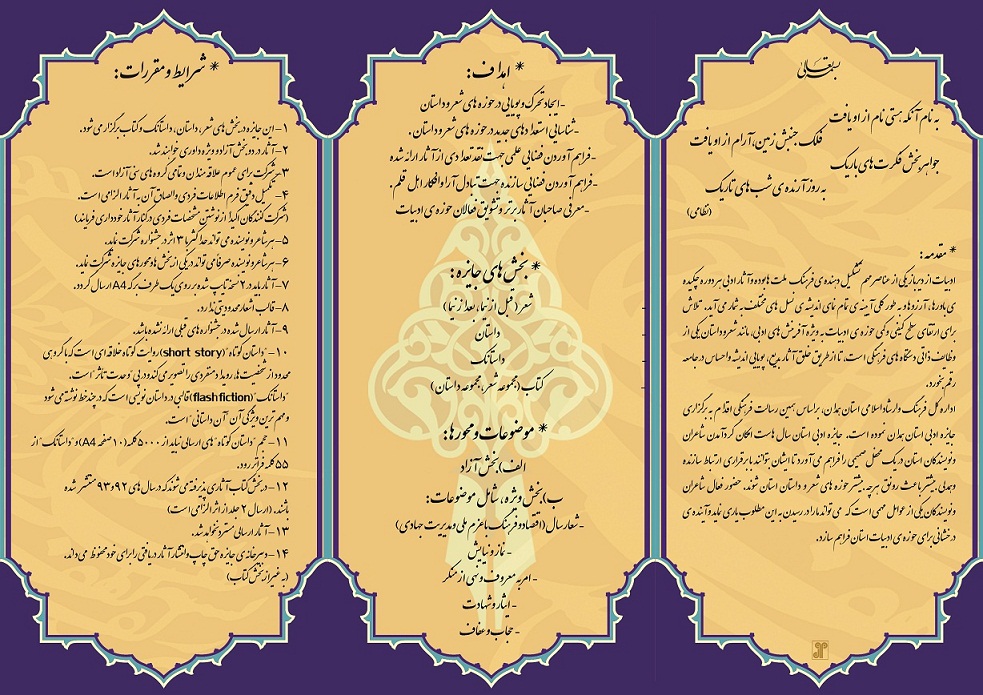 بسمه تعالی
به نام آنکه هستی نام از او یافت
فلک جنبش زمین آرام از او یافت
جواهر بخش فکرت های باریک
به روز آرنده ی شب های تاریک
(نظامی)
* مقدمه :
ادبیات از دیرباز یکی از عناصر مهم تشکیل دهنده ی فرهنگ ملت ها بوده و آثار ادبی هر دوره چکیده
ی باورها، آرزوها و به طور کلی آیینه ی تمام نمای اندیشه ی نسل های مختلف به شمار می آید. تلاش
برای ارتقای سطح کیفی و کمی حوزه ی ادبیات به ویژه آفرینش های ادبی، مانند شعر و داستان یکی از
وظایف ذاتی دستگاه های فرهنگی است، تا از طریق خلق آثار بدیع، پویایی اندیشه و احساس در جامعه
رقم بخورد.
اداره کل فرهنگ و ارشاد اسلامی استان همدان، بر اساس همین رسالت فرهنگی اقدام به برگزاری
جایزه ادبی استان همدان نموده است. جایزه ادبی استان سال هاست امکان گرد آمدن شاعران
و نویسندگان استان در یک محفل صمیمی را فراهم می آورد تا ایشان بتوانند با برقراری ارتباط سازنده
و همدلی بیشتر باعث رونق هر چه بیشتر حوزه های شعر و داستان استان شوند. حضور فعال شاعران
و نویسندگان یکی از عوامل مهمی است که می تواند ما را در رسیدن به این مطلوب یاری نماید و آینده ی
درخشانی برای حوزه ی ادبیات استان فراهم سازد.
* اهداف :
-ایجاد تحرک و پویایی در حوزه های شعر و داستان
-شناسایی استعدادهای جدید در حوزه های شعر و داستان .
-فراهم آوردن فضایی علمی جهت نقد تعدادی از آثار ارائه شده
-فراهم آوردن فضایی سازنده جهت تبادل آرا و افکار اهل قلم.
-معرفی صاحبان آثار برتر و تشویق فعالان حوزه ی ادبیات
* بخش های جایزه :
شعر (قبل از نیما، بعد از نیما)
داستان
داستانک
کتاب (مجموعه شعر، مجموعه داستان)
* موضوعات و محورها :
الف) بخش آزاد
ب) بخش ویژه ، شامل موضوعات :
- شعار سال (اقتصاد و فرهنگ با عزم ملی و مدیریت جهادی)
- نماز و نیایش
- امر به معروف و نهی از منکر
- ایثار و شهادت
- حجاب و عفاف
* شرایط و مقررات :
۱- این جایزه در بخش های شعر، داستان ، داستانک و کتاب برگزار می شود.
۲- آثار در دو بخش آزاد و ویژه داوری خواهند شد.
۳- شرکت برای عموم علاقه مندان و تمامی گروه های سنی آزاد است.
۴- تکمیل دقیق فرم اطلاعات فردی و الصاق آن به آثار الزامی است.
(شرکت کنندگان اکیداً از نوشتن مشخصات فردی در کنار آثار خودداری فرمایند)
۵- هر شاعر و نویسنده می تواند حداکثر با ۳ اثر در جشنواره شرکت نماید.
۶- هر شاعر و نویسنده صرفا می تواند در یکی از بخش ها و محورهای جایزه شرکت نماید.
۷- آثار باید در ۲ نسخه تایپ شده بر روی یک طرف برگه A4 ارسال گردد.
۸- قالب اشعار محدودیتی ندارد.
۹- آثار ارسال شده در جشنواره های قبلی ارائه نشده باشد.
۱۰- "داستان کوتاه" (short story) روایت کوتاه خلاقه ای است که با گروهی
محدود از شخصیت ها، رویداد منفردی را تصویر می کند و در پی "وحدت تاثر" است.
"داستانک" (flash fiction) قالبی در داستان نویسی است که در چند خط نوشته می شود
و مهم ترین ویژگی آن "آن داستانی" است.
۱۱- حجم "داستان کوتاه" های ارسالی نباید از ۵۰۰۰ کلمه (۱۰ صفحه A4) و "داستانک" از
۵۵ کلمه فراتر رود.
۱۲- در بخش کتاب آثاری پذیرفته می شوند که در سال های ۹۲ و ۹۳ منتشر شده
باشند. (ارسال ۲ جلد از اثر الزامی است)
۱۳- آثار ارسالی مسترد نخواهد شد.
۱۴- دبیرخانه ی جایزه حق چاپ و انتشار آثار دریافتی را برای خود محفوظ می داند.
(به غیر از بخش کتاب)